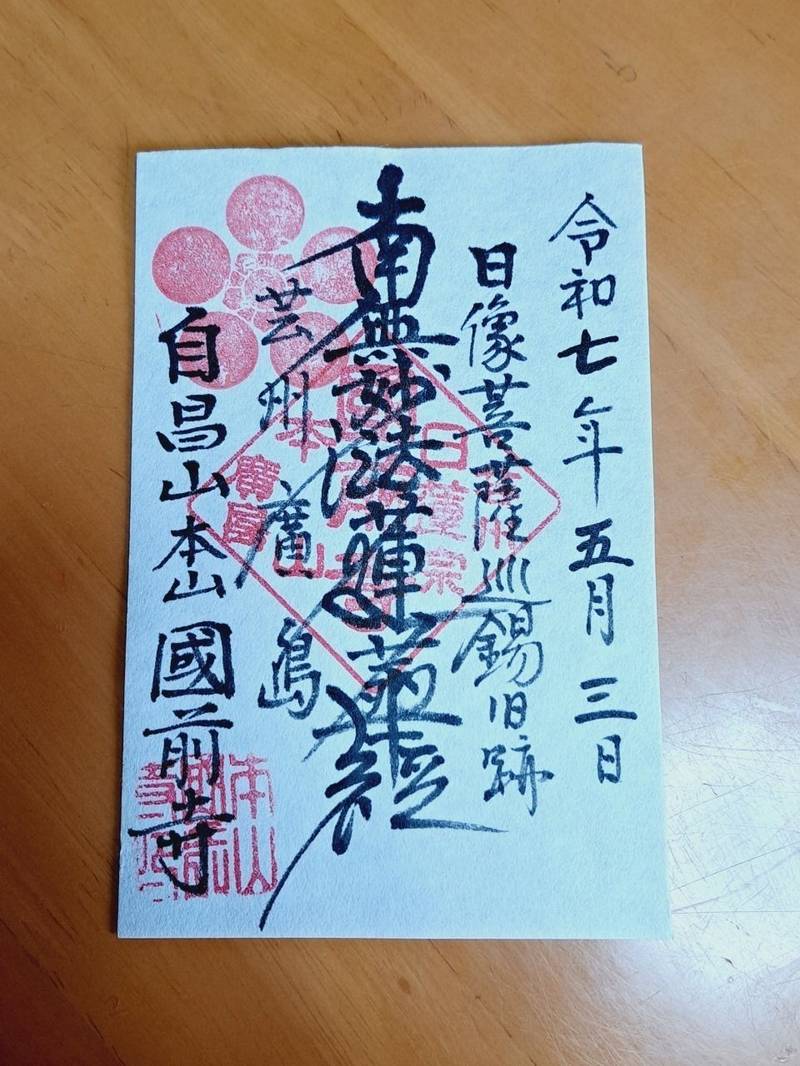 令和七年五月三日
日像菩薩巡錫旧跡
南無妙法蓮華経
芸州廣島
自昌山本山國前寺
日蓮宗
本山
廣島
本山